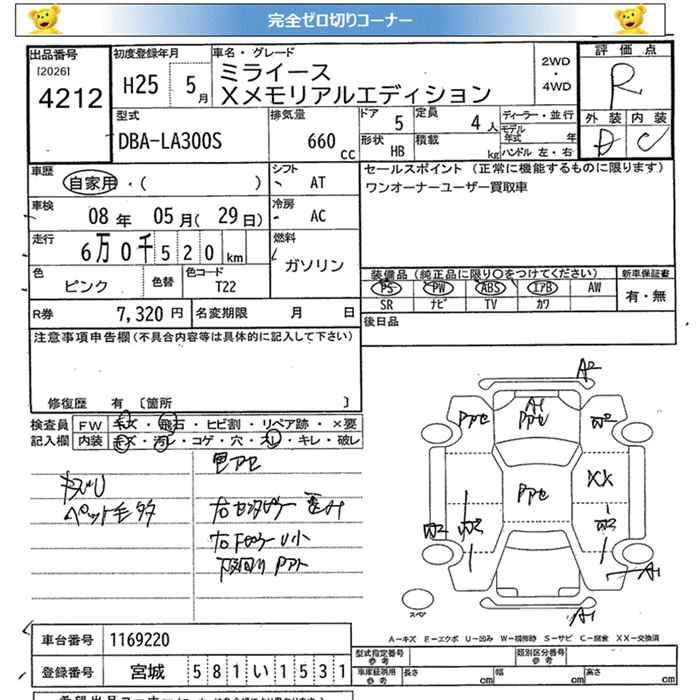 完全ゼロ切りコーナー
出品番号
[2026]
4212
初度登録年月
H25 5月
車名・グレード
ミライース
Xメモリアルエディション
2WD
・
4WD
評価点
R
外装 内装
D C
型式
DBA-LA300S
排気量
660 cc
ドア 5
定員 4人
形状 HB
積載 kg
ディーラー・並行
モデル年式 年
ハンドル 左・右
車歴
自家用・( )
シフト
AT
セールスポイント (正常に機能するものに限ります)
ワンオーナーユーザー買取車
車検
08年 05月(29日)
冷房
AC
走行
6万0千520km
燃料
ガソリン
色
ピンク
色替
色コード
T22
装備品(純正品に限り○をつけてください)
PS PW ABS エアB AW
SR ナビ TV カワ
新車保証書
有・無
R券 7,320円
名変期限 月 日
後日品
注意事項申告欄(不具合内容等は具体的に記入して下さい)
修復歴 有 〔箇所 〕
検査員
記入欄
FW キズ・飛石・ヒビ割・リペア跡・×要
内装 キズ・汚レ・コゲ・穴・スレ・キレ・破レ
ペット毛多
A2
A1
XX
A1
A1
スペア
A-キズ E-エクボ U-凹み W-補修跡 S-サビ C-腐食 XX-交換済
車台番号 1169220
登録番号 宮城 581い1531
型式指定番号
参考
類別区分番号
参考
車庫証明用
参考
長さ cm
幅 cm
高さ cm